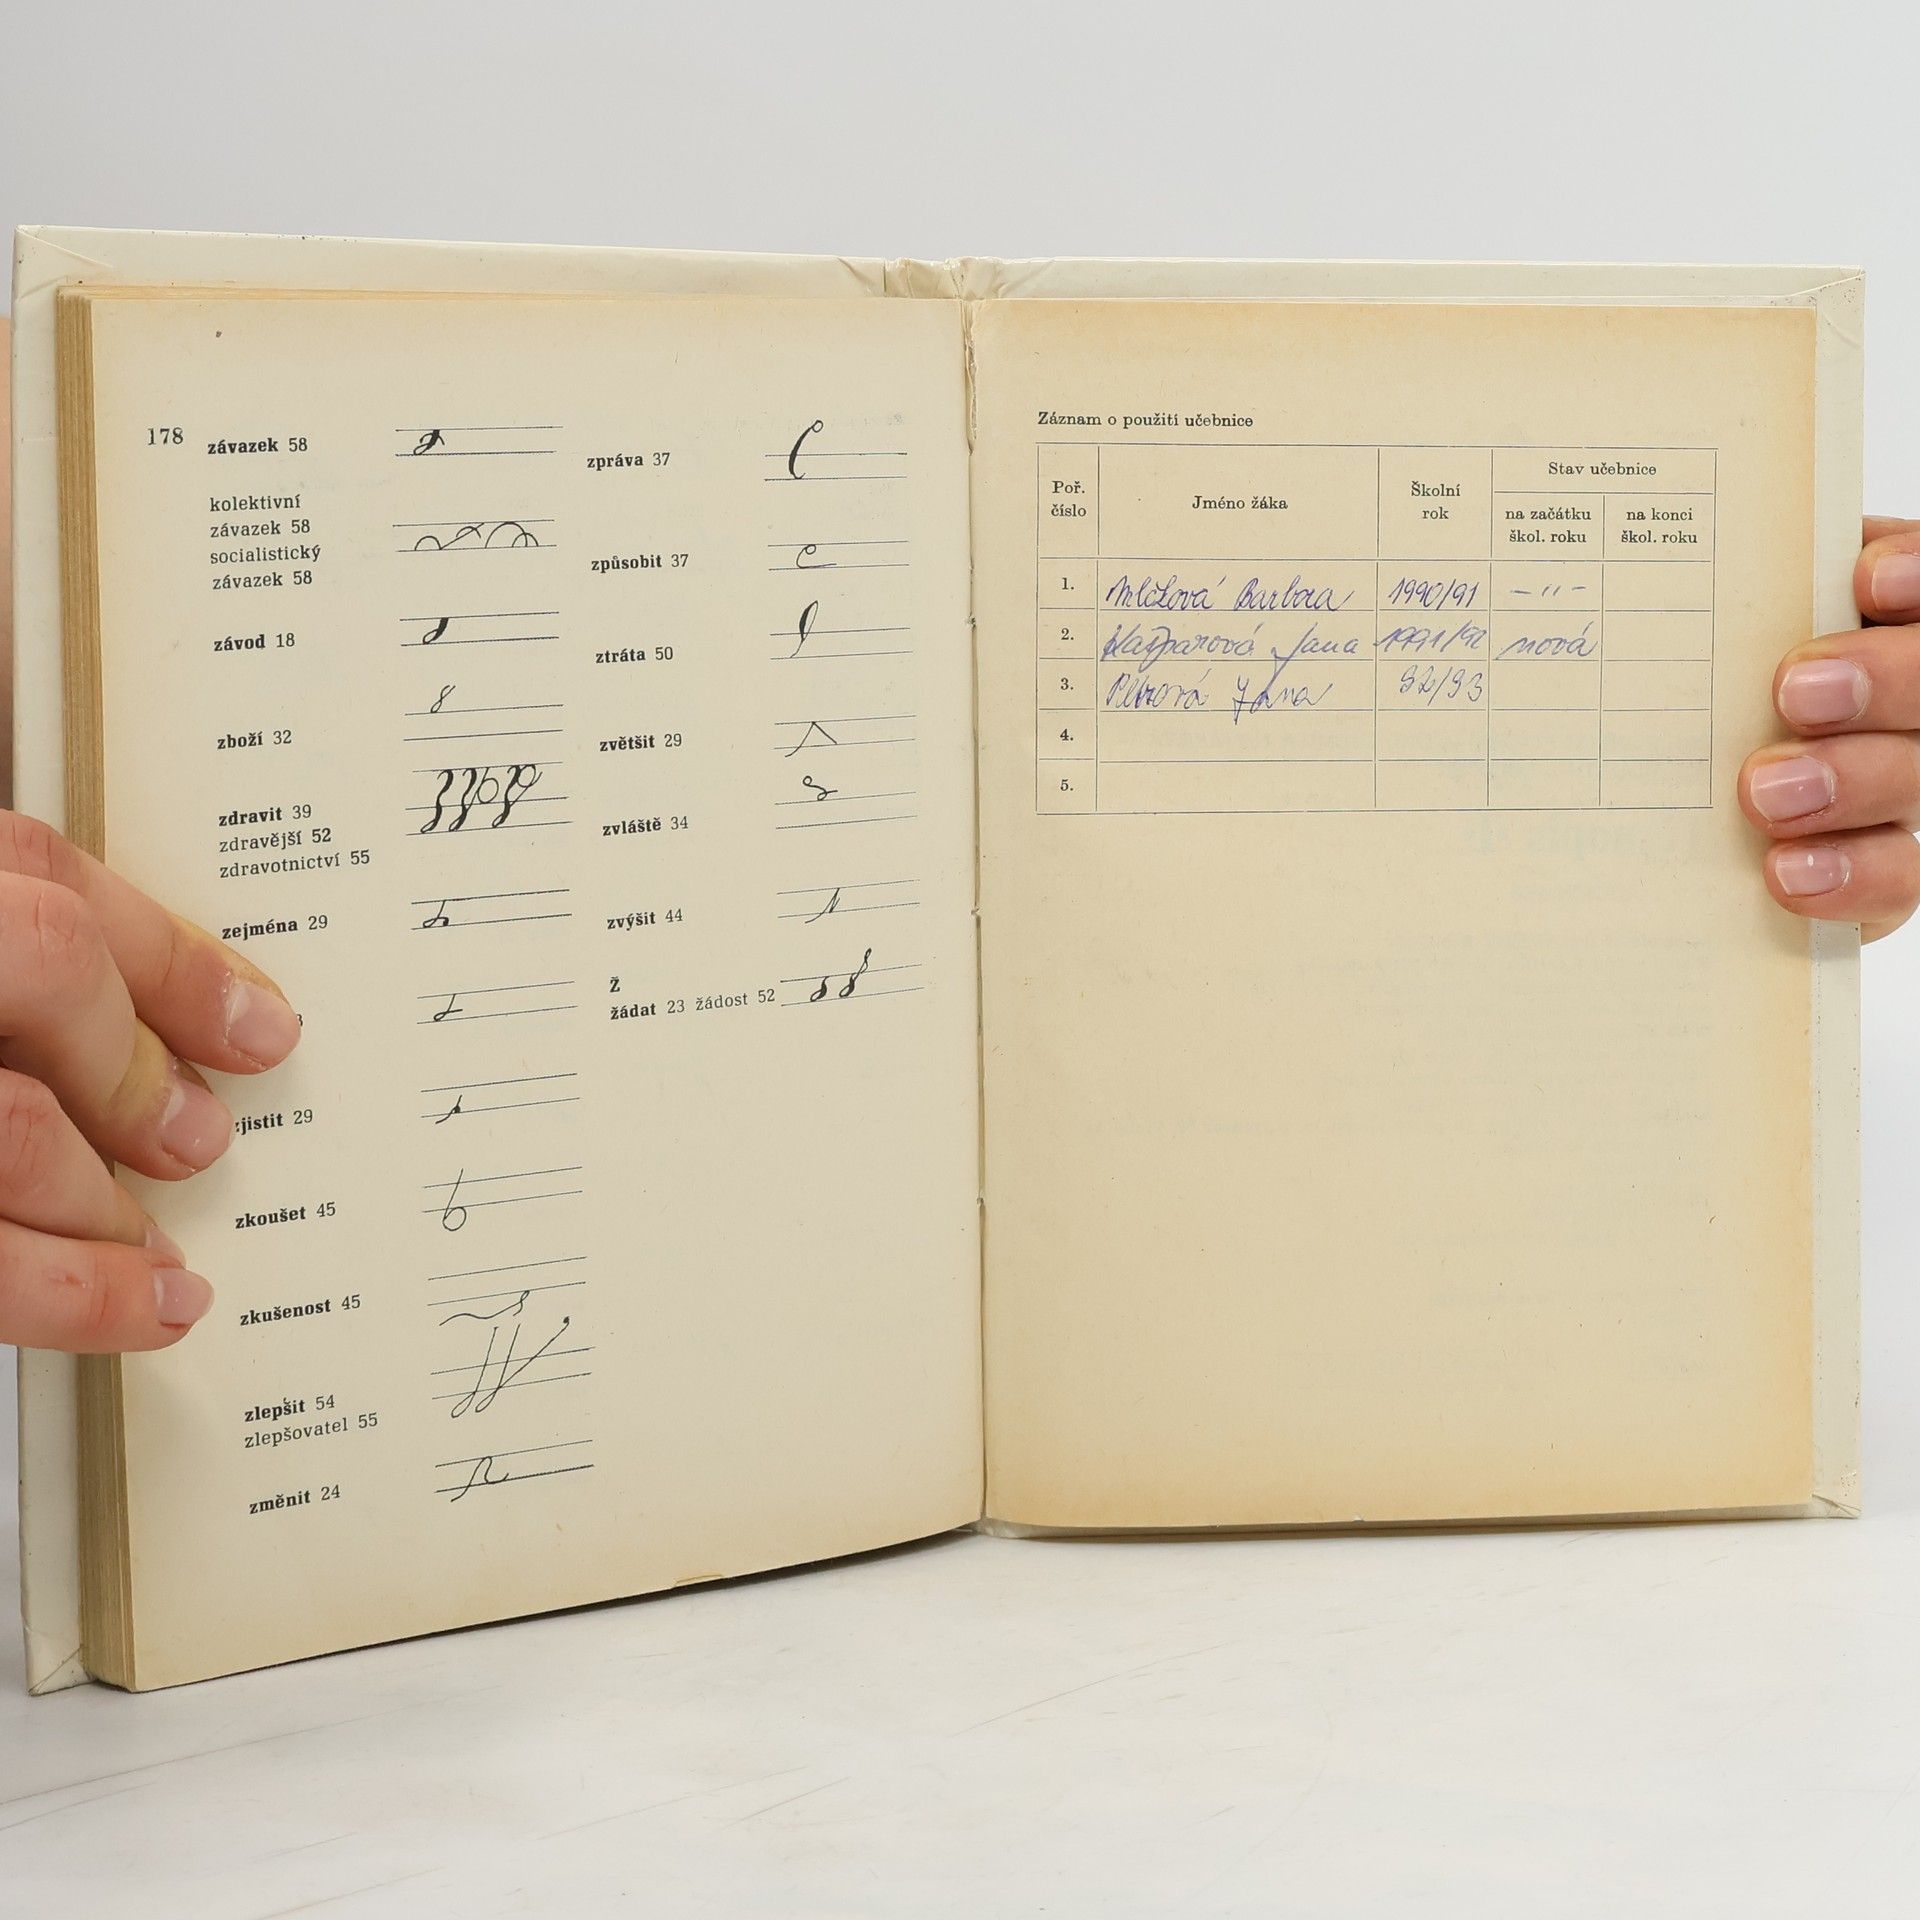 178
závazek 58
kolektivní
závazek 58
socialistický
závazek 58
závod 18
zboží 32
zdravit 39
zdravější 52
zdravotnictví 55
zejména 29
zjistit 29
zkoušet 45
zkušenost 45
zlepšit 54
zlepšovatel 55
změnit 24
zpráva 37
způsobit 37
ztráta 50
zvětšit 29
zvláště 34
zvýšit 44
Ž
žádat 23 žádost 52
Záznam o použití učebnice
Poř. číslo
Jméno žáka
Školní rok
Stav učebnice
na začátku škol. roku
na konci škol. roku
1. Barbora 1990/91 — 〃 —
2. Kašparová Jana 1991/92 nová
3. Petrová Jana 92/93
4.
5.